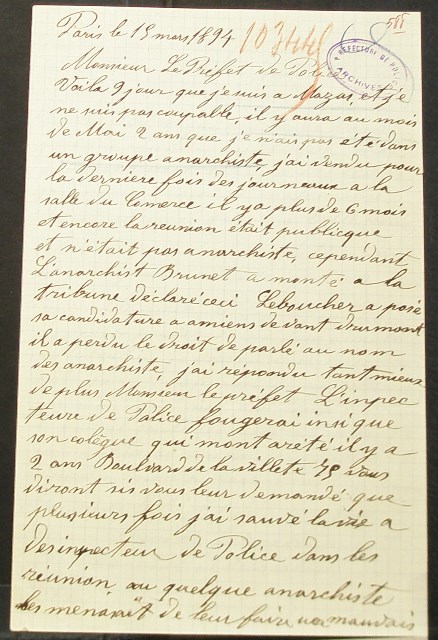 Paris le 15 mars 1894
103448
588
PREFECTURE DE POLICE
ARCHIVES
Monsieur Le Préfet de Police
Voila 9 jour que je suis a Mazas, et je
ne suis pas coupable, il y aura au mois
de Mai 2 ans que je n'ais pas été dans
un groupe anarchiste, j'ai vendu pour
la dernière fois des journeaux a la
salle du Comerce il y a plus de 6 mois
et encore la reunion était publicque
et n'était pas anarchiste, cependant
L'anarchist Brunet a monté a la
tribune déclaré ceci Leboucher a posé
sa candidature a amiens devant drumont
il a perdu le droit de parlé au nom
des anarchiste j'ai répondu tant mieux
de plus Monsieur le préfet L'inpec
teure de Police fougerai insique
son colègue qui m'ont arété il y a
2 ans Boulvard de la villete 75 vous
diront sis vous leur demandé que
plusieurs fois j'ai sauvé la vie a
des inpecteur de Police dans les
réunion au quelque anarchiste
les menaçait de leur faire un mauvais